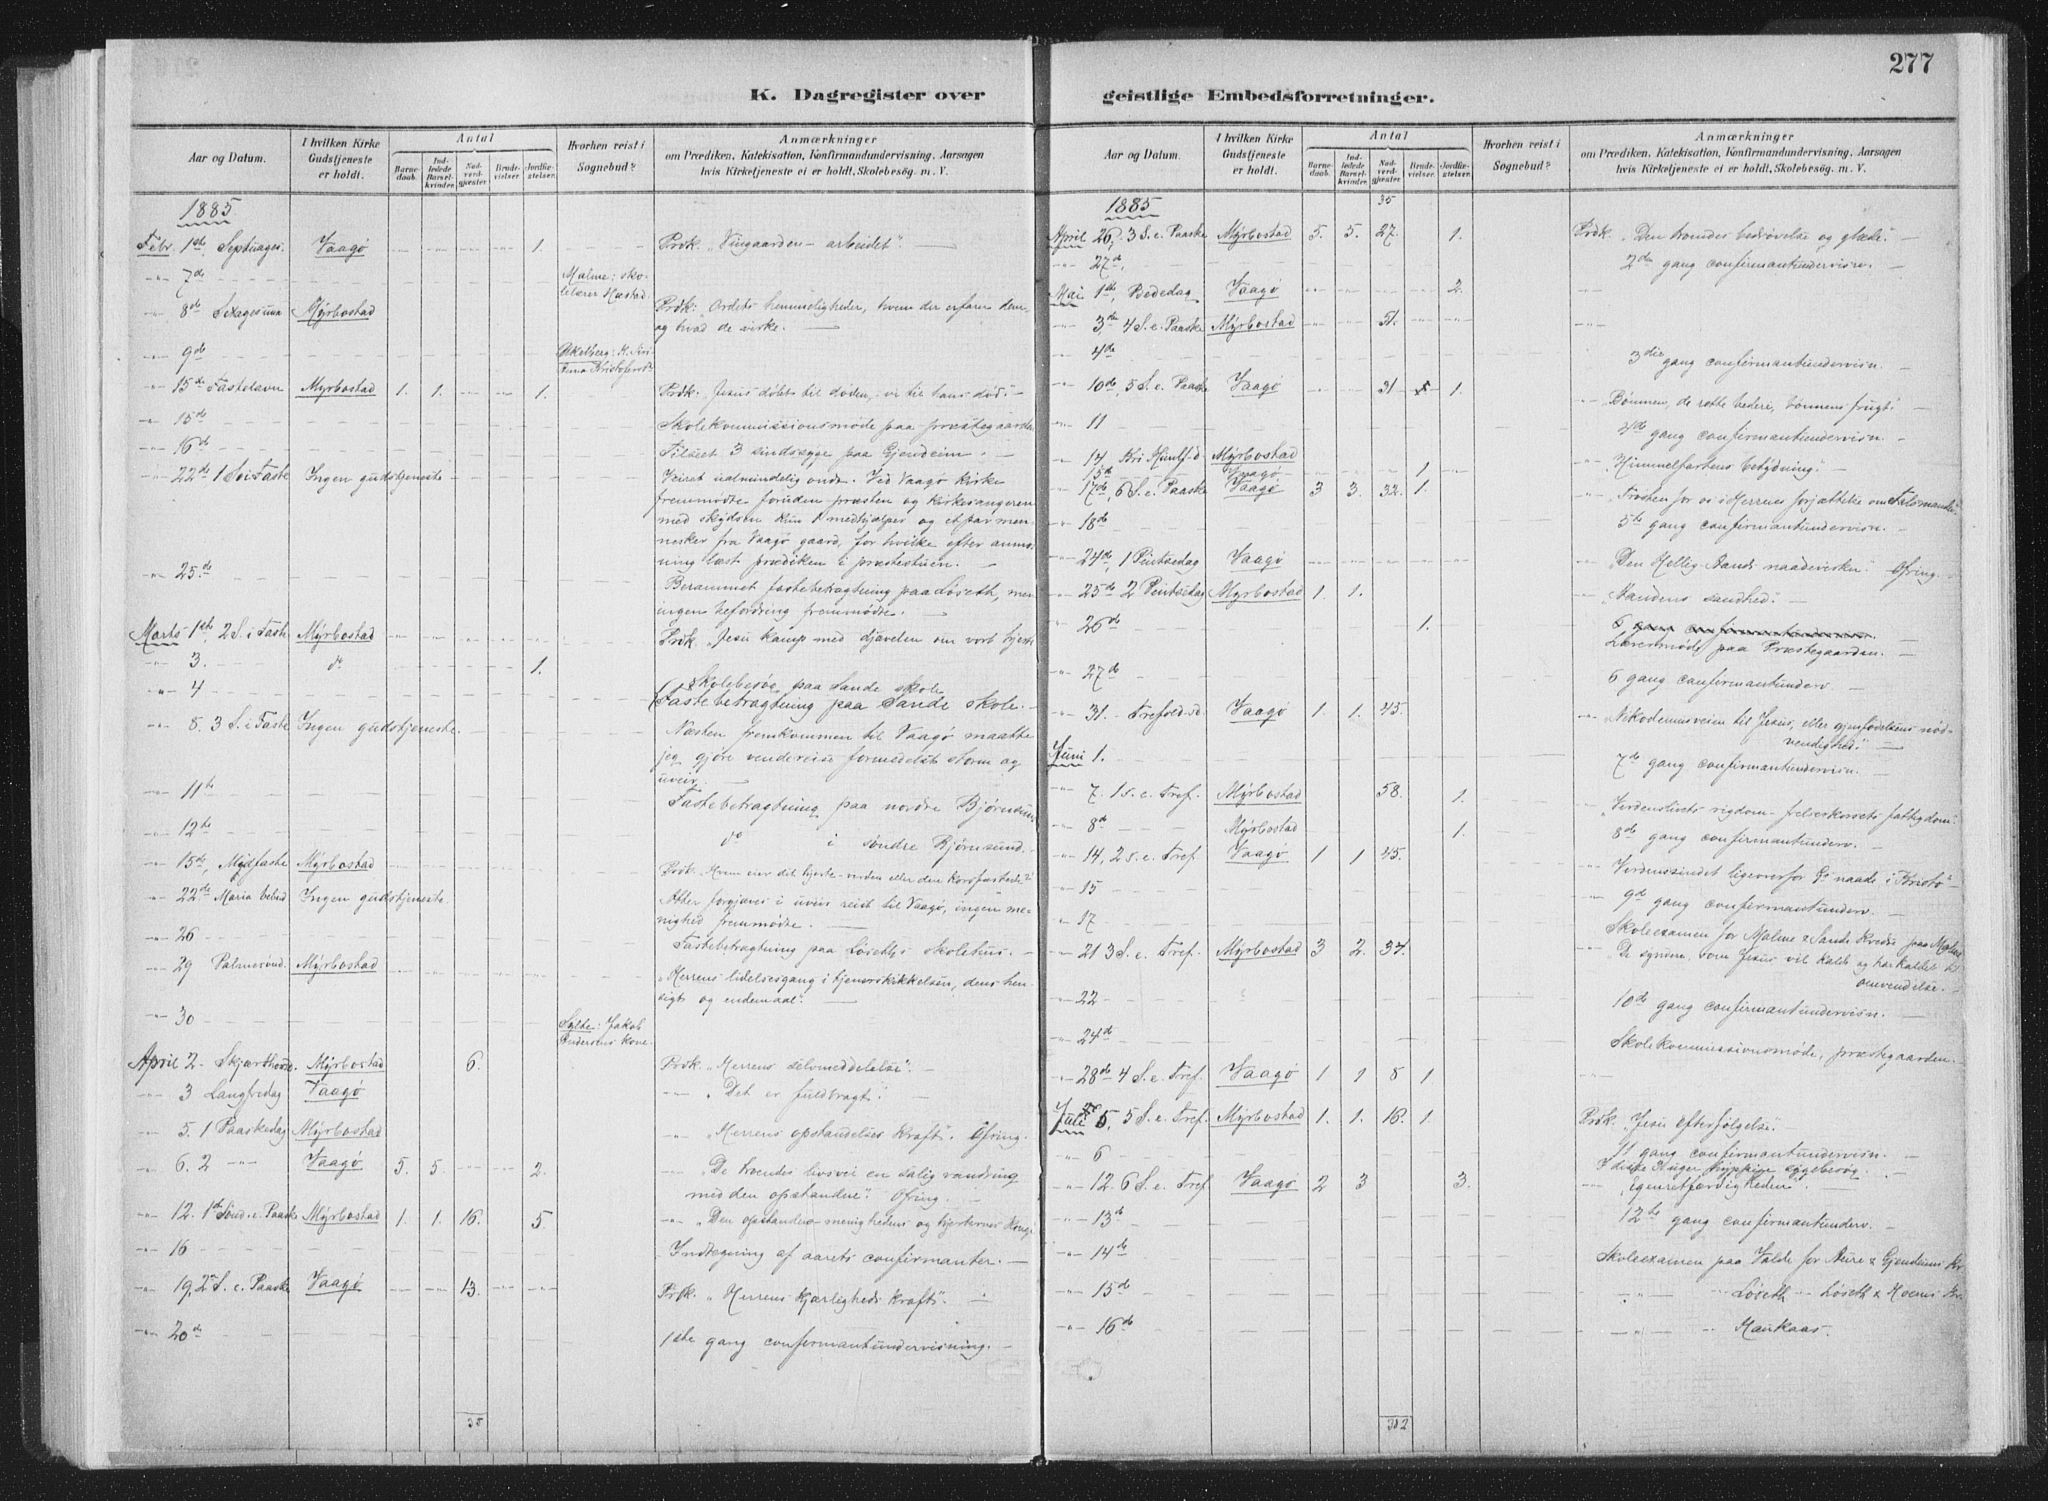 277
K. Dagregister over
Aar og Datum.
I hvilken Kirke Gudstjeneste er holdt.
Antal
Barnedaab.
Indledede Barselkvinder.
Nadverdgjester.
Brudevielser.
Jordfæstelser.
Hvorhen reist i Sognebud?
Anmærkninger
om Prædiken, Katekisation, Konfirmandundervisning, Aarsagen
hvis Kirketjeneste ei er holdt, Skolebesøg. m. V.
1885
Febr. 1ste, Septuages. Vaagø 1. Prdk. "Vingaarden - arbeidet".
7de Malme: skolelærer Hustad.
8de Sexagesima Myrbostad Prdk: "Ordets hemmeligheder, hvem der erfarer dem,
og hvad de virke.
9de
15de Fastelavn Myrbostad 1. 1. 1. Prdk: "Jesus dølets til døden, - vi til hans død."
15de Skolekommissionsmøde paa præstegaarden
16de Tilseet 3 sindssyge paa Gjendeim.
22de 1 S i Faste Ingen gudstjeneste Veiret ualmindelig ondt. Ved Vaagø kirke
fremmødte foruden præsten og kirkesangeren
med skydsen kun 1 medhjælper og et par men-
nesker fra Vaagø gaard, for hvilke efter anmo-
ning læst prædiken i præstestuen.
25de Berammet fastebetragtning paa Løseth, men
ingen befordring fremmødte.
Marts 1ste, 2 S. i Faste Myrbostad Prdk. "Jesu kamp med djævelen om vort hjerte
3. do 1.
4 Skolebesøg paa Sande skole
Fastebetragtning paa Sande skole.
8. 3 S. i Faste Ingen gudstjeneste. Næsten fremkommen til Vaagø maatte
jeg gjøre vendereise formedelst storm og
uveir.
11te Fastebetragtning paa nordre Bjørnsund.
12te do i søndre Bjørnsund.
15de, Mydfaste Myrbostad Prdk. "Hvem eier dit hjerte - verden eller den korsfæstede?"
22de Maria bebud Ingen gudstjeneste. Atter forgjæves i uveir reist til Vaagø, ingen me-
nighed fremmødte.
26 Fastebetragtning paa Løseths skolehus.
29 Palmesønd. Myrbostad "Herrens lidelsesgang i tjenerskikkelsen, dens hen-
sigt og endemaal".
30 Sylte: Jakob Andersens kone.
April 2. Skjærthorsd. Myrbostad 6. Prdk. "Herrens selvmeddelelse".
3 Langfredag Vaagø "Det er fuldbragt".
5. 1 Paaskedag Myrbostad "Herrens opstandelses kraft". Ofring.
6. 2 Vaagø 5. 5. 2. "De troendes livsvei en salig vandring
med den opstandne". Ofring.
12. 1ste Sønd. e. Paaske Myrbostad 1. 1. 16. 5. "Den opstandne - menighedens og hjerternes Konge
16 Indtegning af aarets confirmanter.
19, 2 S. e. Paaske Vaagø 13. Prdk. "Herrens kjærligheds kraft".
20de 1ste gang confirmantundervisning.
35
geistlige Embedsforretninger.
Aar og Datum.
I hvilken Kirke Gudstjeneste er holdt.
Antal
Barnedaab.
Indledede Barselkvinder.
Nadverdgjester.
Brudevielser.
Jordfæstelser.
Hvorhen reist i Sognebud?
Anmærkninger
om Prædiken, Katekisation, Konfirmandundervisning, Aarsagen
hvis Kirketjeneste ei er holdt, Skolebesøg. m. V.
1885 35
April 26, 3 S. e. Paaske Myrbostad 5. 5. 27. 1. Prdk. "Den troendes bedrøvelse og glæde".
27de, 2den gang confirmantundervisn.
Mai 1ste, Bededag Vaagø 2.
3de, 4 S. e. Paaske Myrbostad 51.
4de 3die gang confirmantundervisn.
10de, 5 S. e. Paaske Vaagø 31 1. "Bønnen, de rette bedere, bønnens frugt".
11 4de gang confirmantundervisn.
14 Kri Himlf-d Myrbostad "Himmelfartens betydning".
15de Vaagø 1
17de, 6 S. e. Paaske Vaagø 3 3. 32. 1. "Trøsten for os i Herrens forjættelse om Talsmanden".
18de 5te gang confirmantundervisn.
24de, 1 Pintsedag Vaagø "Den Hellig Aands naadevirkn." Ofring.
25de 2 Pintsedag Myrbostad 1 1. "Aandens sandhed".
26de 1. 6 gang confirmantundervisn.
Lærermøde paa Præstegaarden.
27de 6 gang confirmantunderv.
31. Trefold.sd. Vaagø 1. 1. 45. "Nikodemusveien til Jesus, eller gjenfødelsens nød-
vendighed".
Juni 1. 7de gang confirmantundervisn.
7. 1 s. e. Tref. Myrbostad 58. 1. "Verdenslivets rigdom - frelserkorsets fattigdom".
8de Myrbostad 1. 8de gang confirmantunderv.
14, 2 s. e. Tref. Vaagø 1 1 45. "Verdenssindet ligeoverfor Gs naade i Kristo"
15 9de gang confirmantunderv.
17 Skoleexamen for Malme & Sande Kredse paa Malme
21 3 S. e. Tref. Myrbostad 3 2. 34. "De syndere som Jesus vil kalde og har kaldet til
omvendelse.
22 10de gang confirmantundervisn.
24de Skolekommissionsmøde, præstegaarden.
28de 4 S. e. Tref. Vaagø 1 1 8 1
Juli 5, 5 S. e. Tref. Myrbostad 1. 1. 16. 1. Prdk. "Jesu efterfølgelse.
6 11 gang confirmantundervisn.
I disse Uger hyppige sygebesøg.
12. 6 S. e. Tref. Vaagø 2 3 3. "Egenretfærdigheden".
13de 12te gang confirmantunderv.
14de Skoleexamen paa Valde for Aure & Gjendeims Kr
15de Løseth - Løseth & Hoems Kr.
16de Haukaas.
302